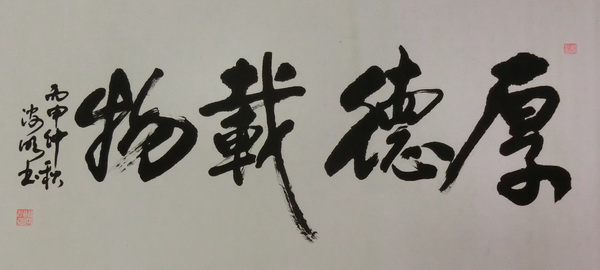 厚德載物
丙申仲秋
书